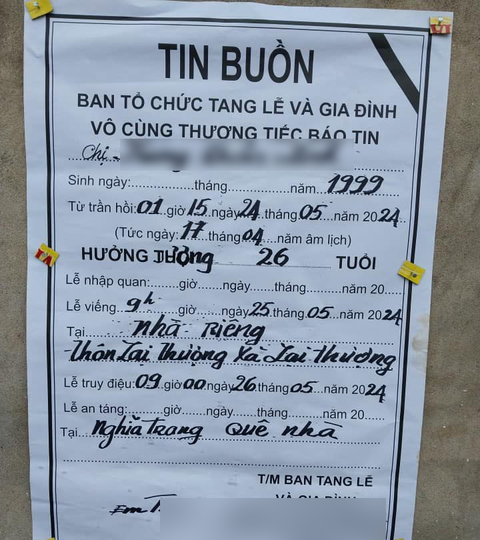 TIN BUỒN
BAN TỔ CHỨC TANG LỄ VÀ GIA ĐÌNH
VÔ CÙNG THƯƠNG TIẾC BÁO TIN
Chị
Sinh ngày:...............tháng...............năm...1999
Từ trần hồi: 01 giờ 15 ngày 24 tháng 05 năm 2024
(Tức ngày: 17 tháng 04 năm âm lịch)
HƯỞNG Dương 26 TUỔI
Lễ nhập quan:.......giờ.......ngày.......tháng.......năm 20.....
Lễ viếng 9h ngày 25 tháng 05 năm 2024
Tại nhà Riêng
Thôn Lại Thượng Xã Lại Thượng
Lễ truy điệu: 09 giờ 00 ngày 26 tháng 05 năm 2024
Lễ an táng:.......giờ.......ngày.......tháng.......năm 20.....
Tại Nghĩa Trang Quê nhà
T/M BAN TANG LỄ
VÀ GIA ĐÌNH
Em T